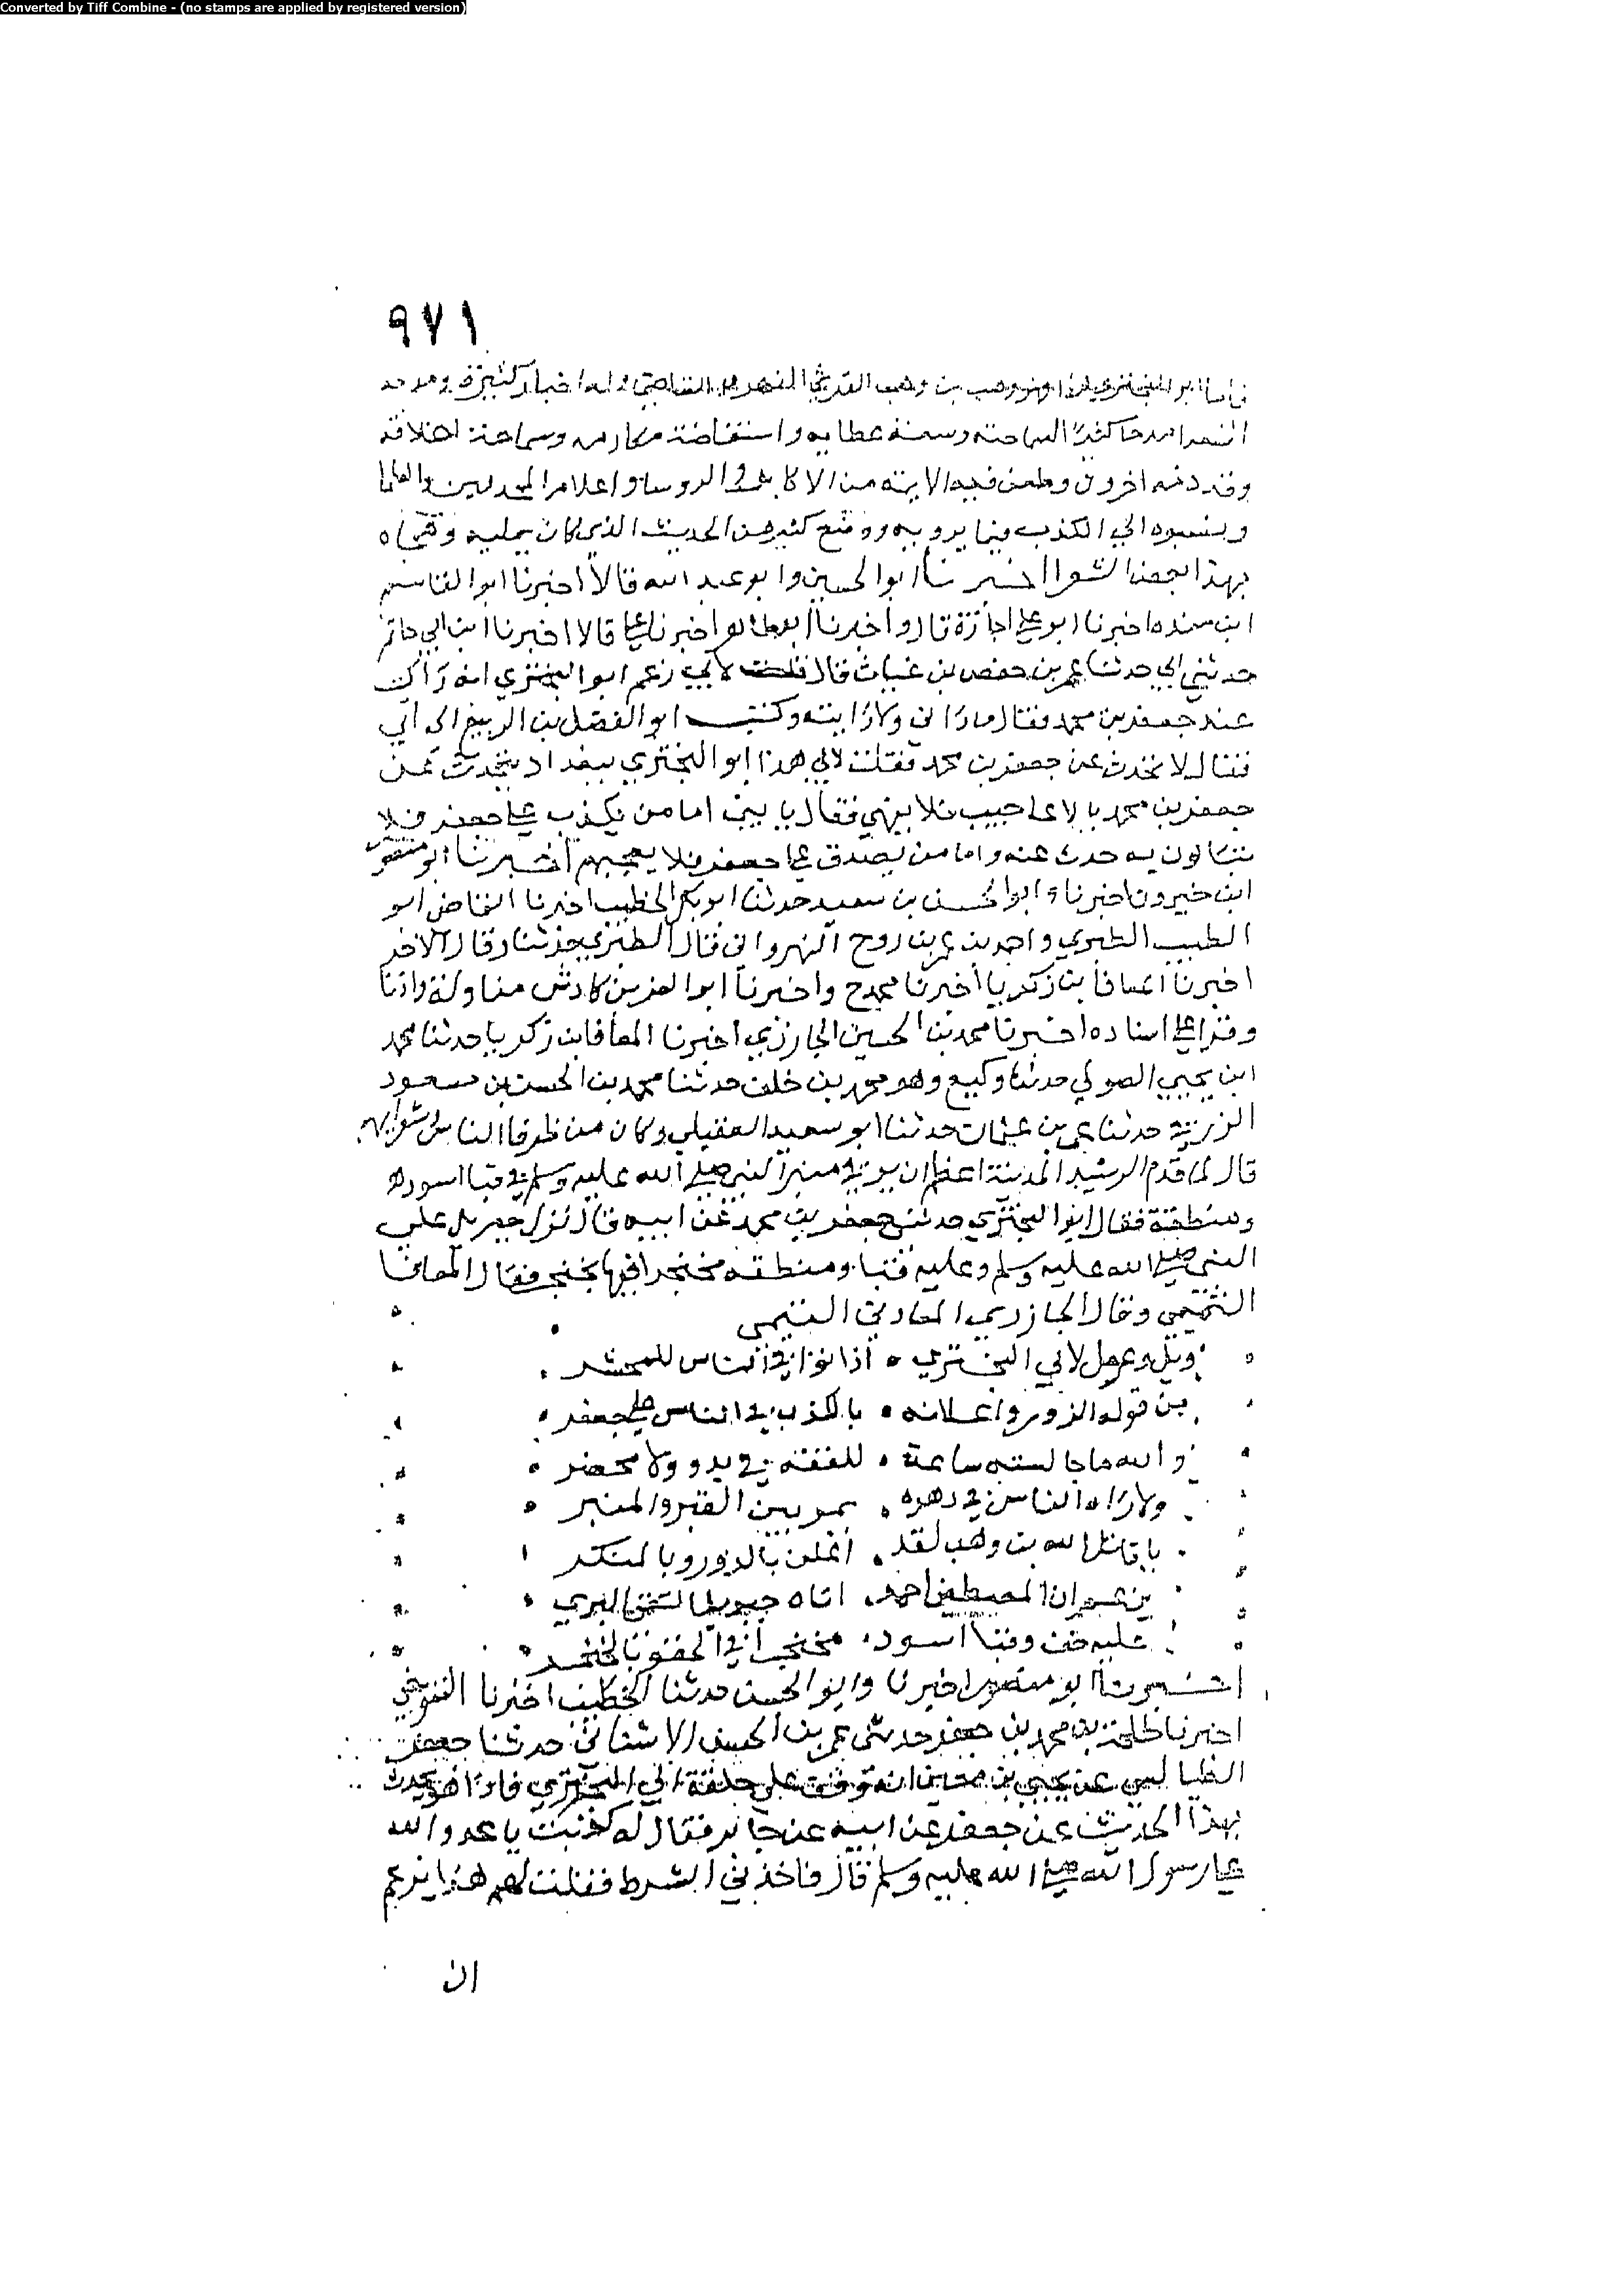 Converted by Tiff Combine - (no stamps are applied by registered version)
٩٧١
فاما ابو البختري هذا فهو وهب بن وهب القرشي القاضي وله اخبار كثيرة ومدحه
الشعرا مدحا كثيرا لسماحته وسعة عطايه واستفاضة مكارمه وسماحة اخلاقه
وقد ذمه اخرون وطعن فيه الايمة من الاكابر والروسا واعلام المحدثين والعلما
وينسبوه الي الكذب فيما يرويه ووضع كثير من الحديث الذي كان يمليه وهجاه
بهذا بعض الشعرا اخبرنا ابو الحسين وابو عبد الله قالا اخبرنا ابو القاسم
ابن منده اخبرنا ابو علي اجازة قال واخبرنا ابو طاهر اخبرنا علي قالا اخبرنا ابن ابي حاتم
حدثني ابي حدثنا عمر بن حفص بن غياث قال قلت لابي زعم ابو البختري انه راك
عند جعفر بن محمد فقال ماراني ولا رايته وكتب ابو الفضل بن الربيع الي ابي
فقال لا تحدث عن جعفر بن محمد فقلت لابي هذا ابو البختري ببغداد يحدث عن
جعفر بن محمد بالاعاجيب فلا ينهي فقال يا بني اما من يكذب علي جعفر فلا
يبالون به حدث عنه واما من يصدق علي جعفر فلا يعجبهم اخبرنا ابو منصور
ابن خيرون اخبرنا وابو الحسن بن سعيد حدثنا ابو بكر الخطيب اخبرنا القاضي ابو
الطيب الطبري واحمد بن عمر بن روح النهرواني قال الطبري حدثنا وقال الاخر
اخبرنا المعافا بن زكريا اخبرنا محمد ح واخبرنا ابو العز بن كادش مناولة واذنا
وقرا علي اسناده اخبرنا محمد بن الحسين الجازري اخبرنا المعافا بن زكريا حدثنا محمد
ابن يحيي الصولي حدثنا وكيع وهو محمد بن خلف حدثنا محمد بن الحسن بن مسعود
الزرقي حدثنا عمر بن عثمان حدثنا ابو سعيد العقيلي وكان من ظرفا الناس وشعرايهم
قال لما قدم الرشيد المدينة اعظم ان يرقي منبر النبي صلي الله عليه وسلم في قبا اسود
ومنطقة فقال ابو البختري حدثني جعفر بن محمد عن ابيه قال نزل جبريل علي
النبي صلي الله عليه وسلم وعليه قبا ومنطقه مخنجر فيها بخنجر فقال المعافا
التيمي وقال الجازري المعادني التيمي
ويل وعول لابي البختري ٥ اذا توافي الناس للمحشر
من قوله الزور واعلانه ٥ بالكذب في الناس علي جعفر
والله ما جالسته ساعة ٥ للفقه في بدو ولا محضر
ولا راه الناس في دهره ٥ يمر بين القبر والمنبر
يا قاتل الله بن وهب لقد ٥ اعلن بالزور وبالمنكر
يزعم ان المصطفي احمد ٥ اتاه جبريل التقي البري
عليه خف وقبا اسود ٥ مخنجرا في الحقو بالخنجر
اخبرنا ابو منصور اخبرنا وابو الحسن حدثنا الخطيب اخبرنا التنوخي
اخبرنا طلحة بن محمد بن جعفر حدثني عمر بن الحسن الاشناني حدثنا جعفر
الطيالسي عن يحيي بن معين انه وقف علي حلقة ابي البختري فاذا هو يحدث
بهذا الحديث عن جعفر عن ابيه عن جابر فقال له كذبت يا عدو الله
علي رسول الله صلي الله عليه وسلم قال فاخذني الشرط فقلت لهم هذا يزعم
ان